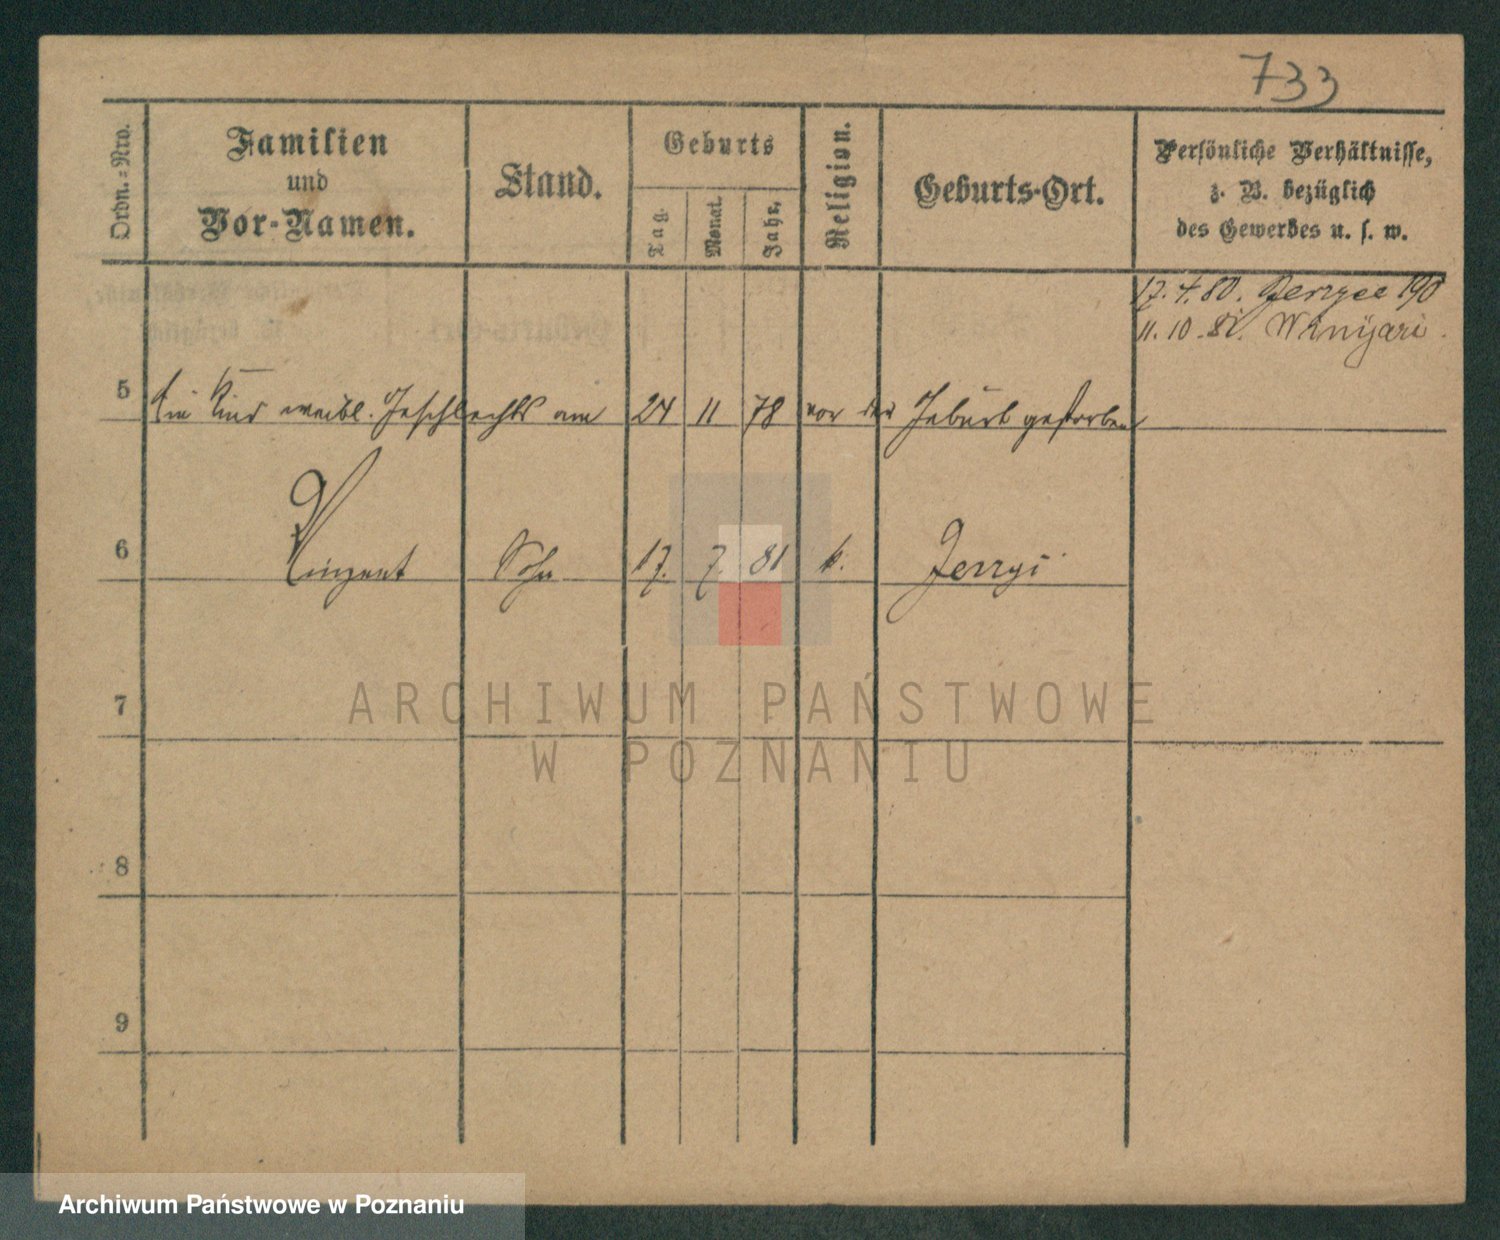 733
Ordn.=Nro.
Familien
und
Vor-Namen.
Stand.
Geburts
Tag.
Monat.
Jahr.
Religion.
Geburts-Ort.
Persönliche Verhältnisse,
z. B. bezüglich
des Gewerbes u. s. w.
17. 4. 80. Jerzyce 190
11. 10. 81. Winijari
5 Ein Kind weibl. Geschlechts am 24 11 78 vor der Geburt gestorben
6 Vinzent Sohn 17. 7. 81 k. Jerzyi
7
8
9
ARCHIWUM PAŃSTWOWE
W POZNANIU
Archiwum Państwowe w Poznaniu